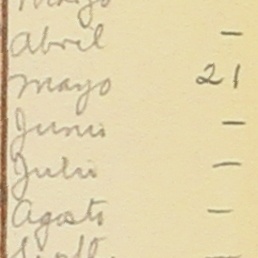 Abril —
Mayo 21
Junio —
Julio —
Agosto —